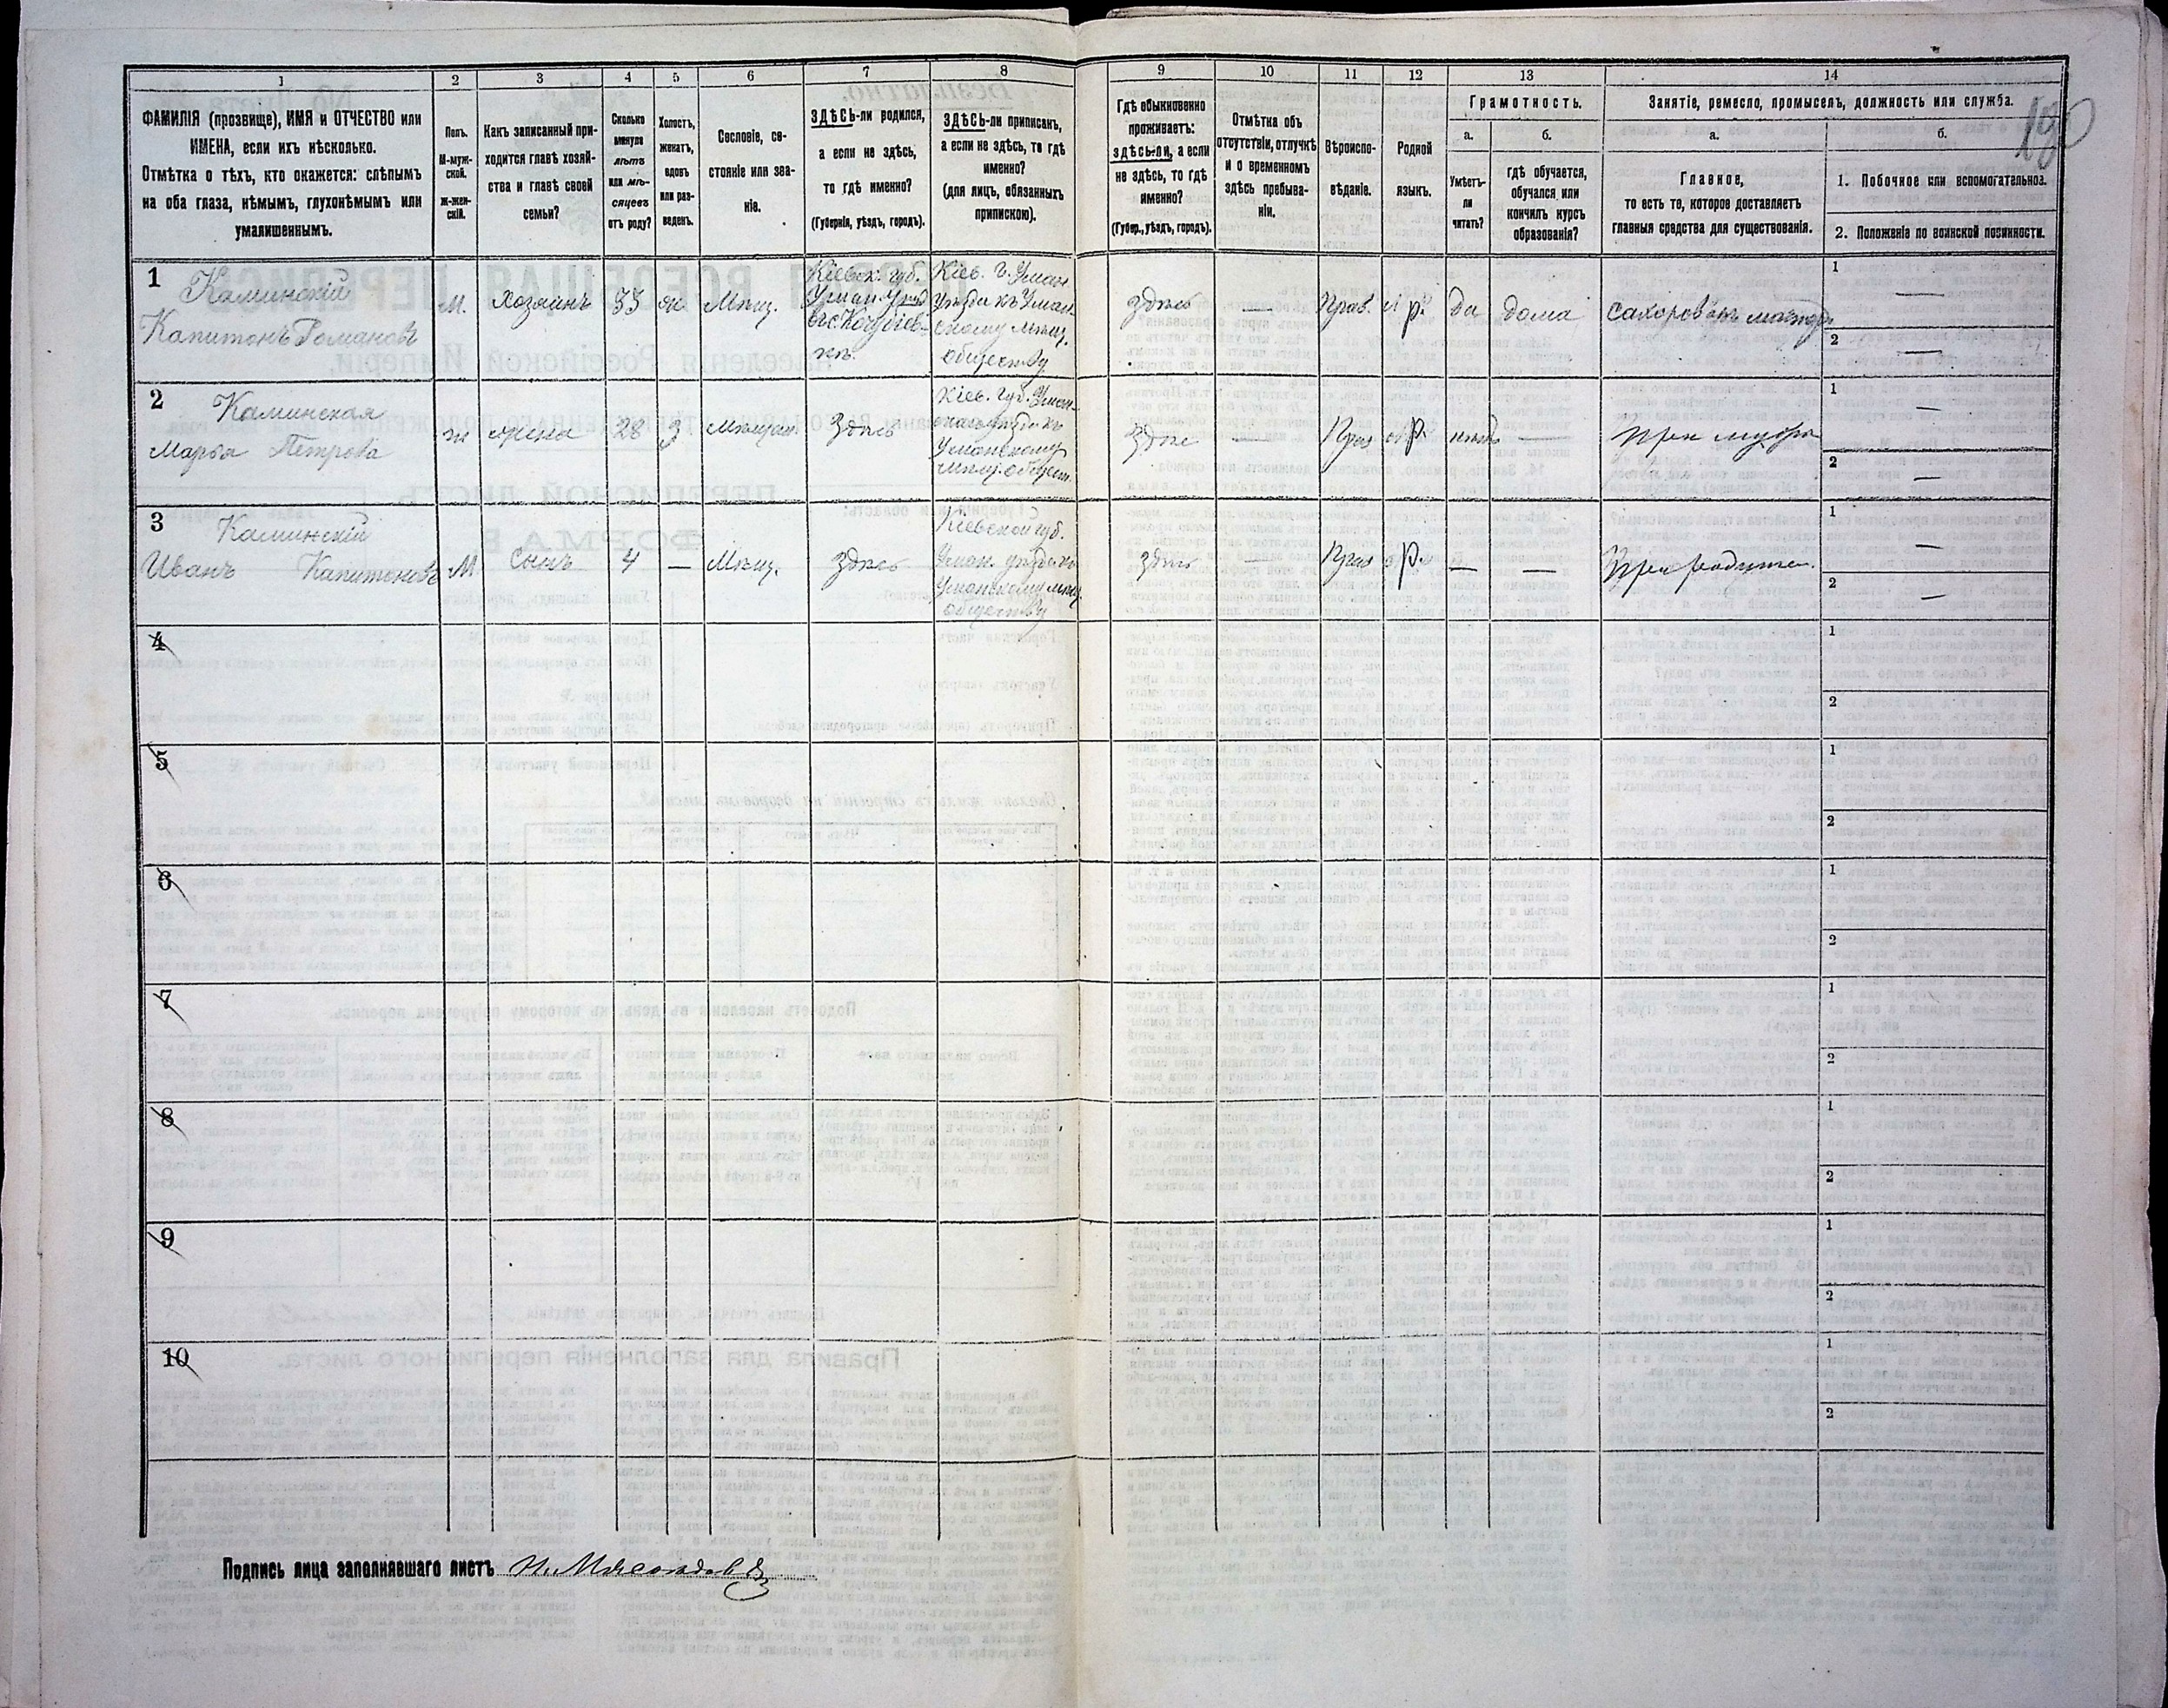 1
2
3
4
5
6
7
8
9
10
11
12
13
14
ФАМИЛІЯ (прозвище), ИМЯ и ОТЧЕСТВО или
ИМЕНА, если ихъ нѣсколько.
Отмѣтка о тѣхъ, кто окажется: слѣпымъ
на оба глаза, нѣмымъ, глухонѣмымъ или
умалишеннымъ.
Полъ.
М-муж-
ской.
ж-жен-
скій.
Какъ записанный при-
ходится главѣ хозяй-
ства и главѣ своей
семьи?
Сколько
минуло
лѣтъ
или мѣ-
сяцевъ
отъ роду?
Холостъ,
женатъ,
вдовъ
или раз-
веденъ.
Сословіе, со-
стояніе или зва-
ніе.
ЗДѢСЬ-ли родился,
а если не здѣсь,
то гдѣ именно?
(Губернія, уѣздъ, городъ).
ЗДѢСЬ-ли приписанъ,
а если не здѣсь, то гдѣ
именно?
(для лицъ, обязанныхъ
припискою).
Гдѣ обыкновенно
проживаетъ:
здѣсь-ли, а если
не здѣсь, то гдѣ
именно?
(Губер., уѣздъ, городъ).
Отмѣтка объ
отсутствіи, отлучкѣ
и о временномъ
здѣсь пребыва-
ніи.
Вѣроиспо-
вѣданіе.
Родной
языкъ.
Грамотность.
а.
б.
Умѣетъ-
ли
читать?
гдѣ обучается,
обучался или
кончилъ курсъ
образованія?
Занятіе, ремесло, промыселъ, должность или служба.
а.
б.
Главное,
то есть то, которое доставляетъ
главныя средства для существованія.
1. Побочное или вспомогательное.
2. Положеніе по воинской повинности.
1
Каминскій
Капитонъ Романовъ
М.
Хозяинъ
55
ж
Мѣщ.
Кіевск. губ.
Уман. Уѣзд
Кіев. г. Уман
уѣзда къ Уман-
скому мѣщ.
обществу
здѣсь
—
Прав.
р.
да
дома
1
—
2
—
2
Каминская
Марья Петрова
ж
жена
28
З
Мѣщан.
Здѣсь
Кіев. губ. Уман-
Уманскому
мѣщ. общест.
Здѣс
—
Прав
р.
нѣтъ
—
При мужѣ
1
—
2
—
3
Каминскій
Иванъ Капитоновъ
М
Сынъ
4
—
Мѣщ.
здѣсь
Кіевской губ.
Уман. уѣзда къ
Уманскому мѣщ.
обществу
здѣсь
—
Прав
р.
—
—
При родител.
1
—
2
—
4
1
2
5
1
2
6
1
2
7
1
2
8
1
2
9
1
2
10
1
2
Подпись лица заполнявшаго листъ Н. Мясоѣдовъ